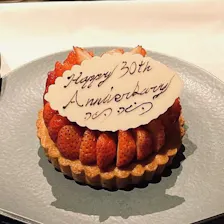 Happy 30th
Anniversary